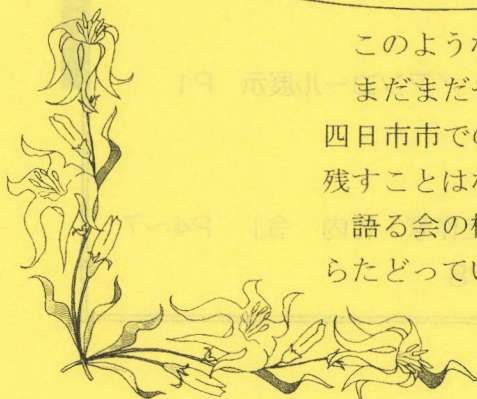 このような
まだまだ
四日市市での
残すことは
語る会の
らたどってい